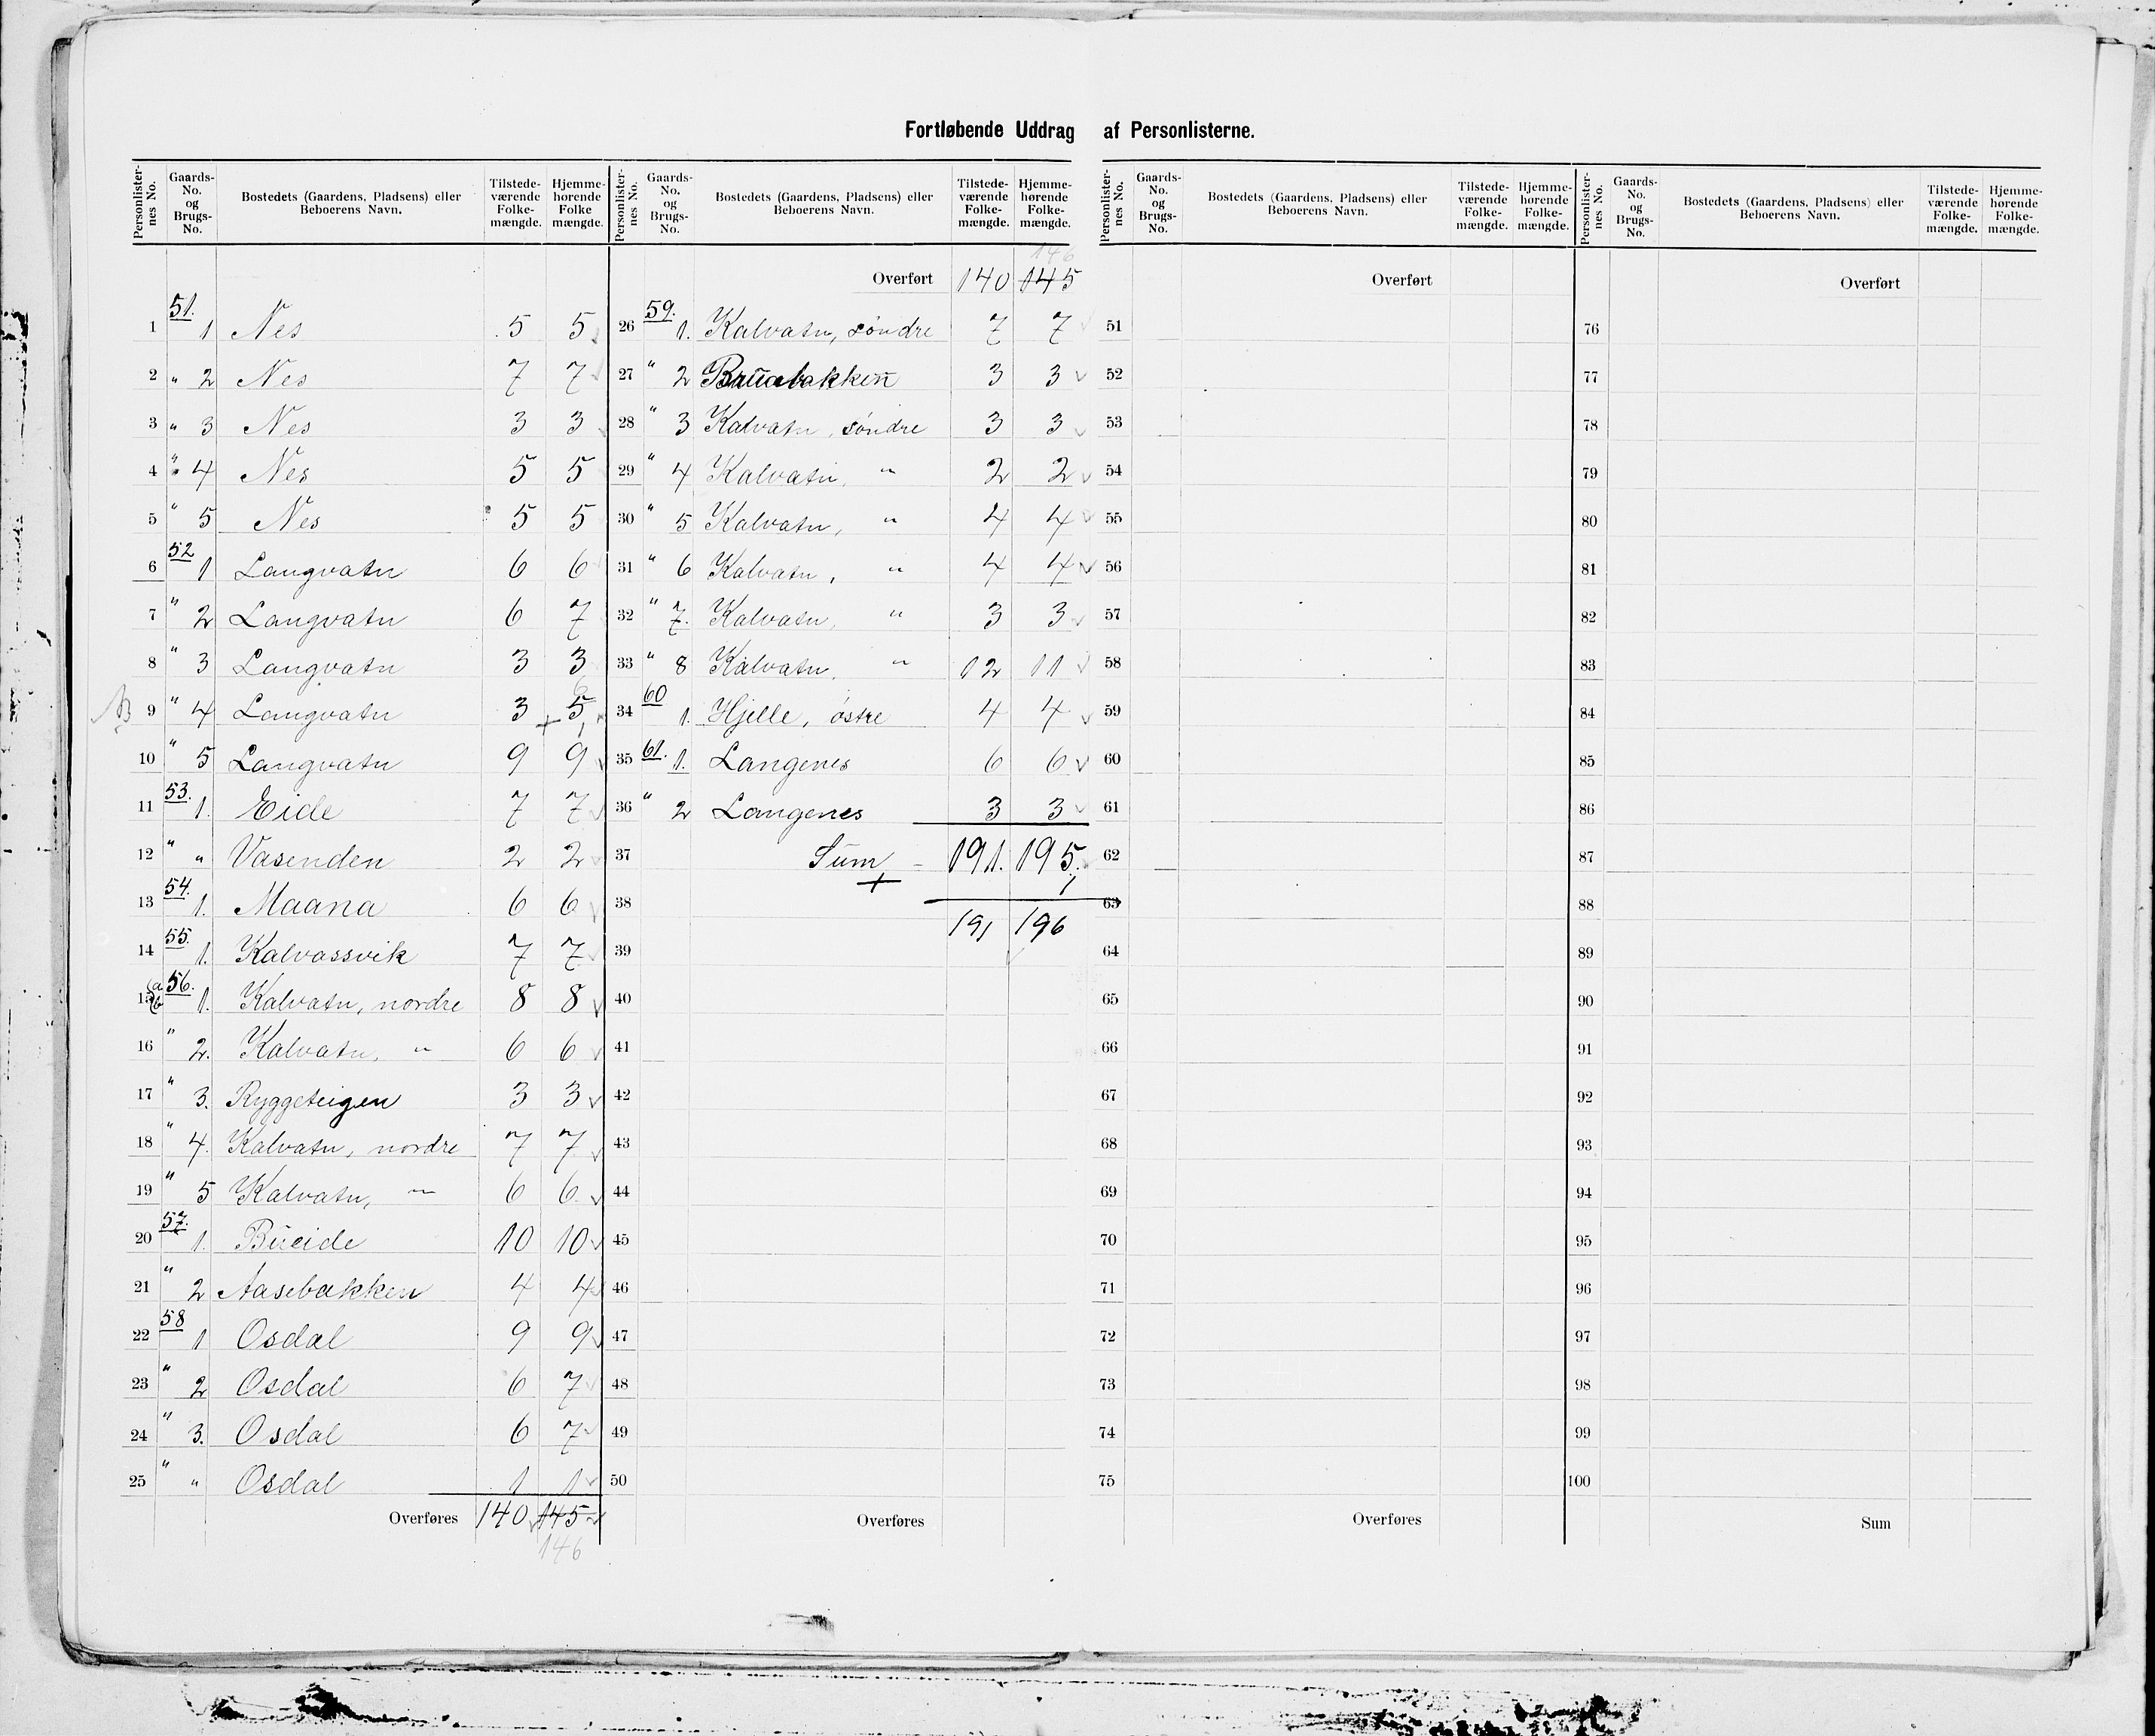 Fortløbende Uddrag af Personlisterne.
Personlister-nes No. | Gaards-No. og Brugs-No. | Bostedets (Gaardens, Pladsens) eller Beboerens Navn. | Tilstede-værende Folke-mængde. | Hjemme-hørende Folke mængde.
1 51. 1 Nes 5 5
2 " 2 Nes 7 7
3 " 3 Nes 3 3
4 " 4 Nes 5 5
5 " 5 Nes 5 5
6 52 1 Langvatn 6 6
7 " 2 Langvatn 6 7
8 " 3 Langvatn 3 3
9 " 4 Langvatn 3 + 5 6
10 " 5 Langvatn 9 9
11 53. 1. Eide 7 7
12 " " Vasenden 2 2
13 54. 1. Maana 6 6
14 55. 1. Kalvassvik 7 7
15 a b 56. 1. Kalvatn, nordre 8 8
16 " 2. Kalvatn, " 6 6
17 " 3. Ryggeteigen 3 3
18 " 4. Kalvatn, nordre 7 7
19 " 5 Kalvatn, " 6 6
20 57. 1. Bueide 10 10
21 " 2 Aasebakken 4 4
22 58 1 Osdal 9 9
23 " 2 Osdal 6 7
24 " 3. Osdal 6 7
25 " " Osdal 1 1
Overføres 140 145
146
Personlister-nes No. | Gaards-No. og Brugs-No. | Bostedets (Gaardens, Pladsens) eller Beboerens Navn. | Tilstede-værende Folke-mængde. | Hjemme-hørende Folke-mængde.
146
Overført 140 145
26 59. 1. Kalvatn, søndre 7 7
27 " 2 Bruabakken 3 3
28 " 3 Kalvatn, søndre 3 3
29 " 4 Kalvatn, " 2 2
30 " 5 Kalvatn, " 4 4
31 " 6 Kalvatn, " 4 4
32 " 7. Kalvatn, " 3 3
33 " 8 Kalvatn, " 12 11
34 60 1. Hjelle, østre 4 4
35 61. 1. Langenes 6 6
36 " 2 Langenes 3 3
37 Sum 191. 195.
+ 1
38
191 196
39
40
41
42
43
44
45
46
47
48
49
50
Overføres
Personlister-nes No. | Gaards-No. og Brugs-No. | Bostedets (Gaardens, Pladsens) eller Beboerens Navn. | Tilstede-værende Folke-mængde. | Hjemme-hørende Folke-mængde.
Overført
51
52
53
54
55
56
57
58
59
60
61
62
63
64
65
66
67
68
69
70
71
72
73
74
75
Overføres
Personlister-nes No. | Gaards-No. og Brugs-No. | Bostedets (Gaardens, Pladsens) eller Beboerens Navn. | Tilstede-værende Folke-mængde. | Hjemme-hørende Folke-mængde.
Overført
76
77
78
79
80
81
82
83
84
85
86
87
88
89
90
91
92
93
94
95
96
97
98
99
100
Sum